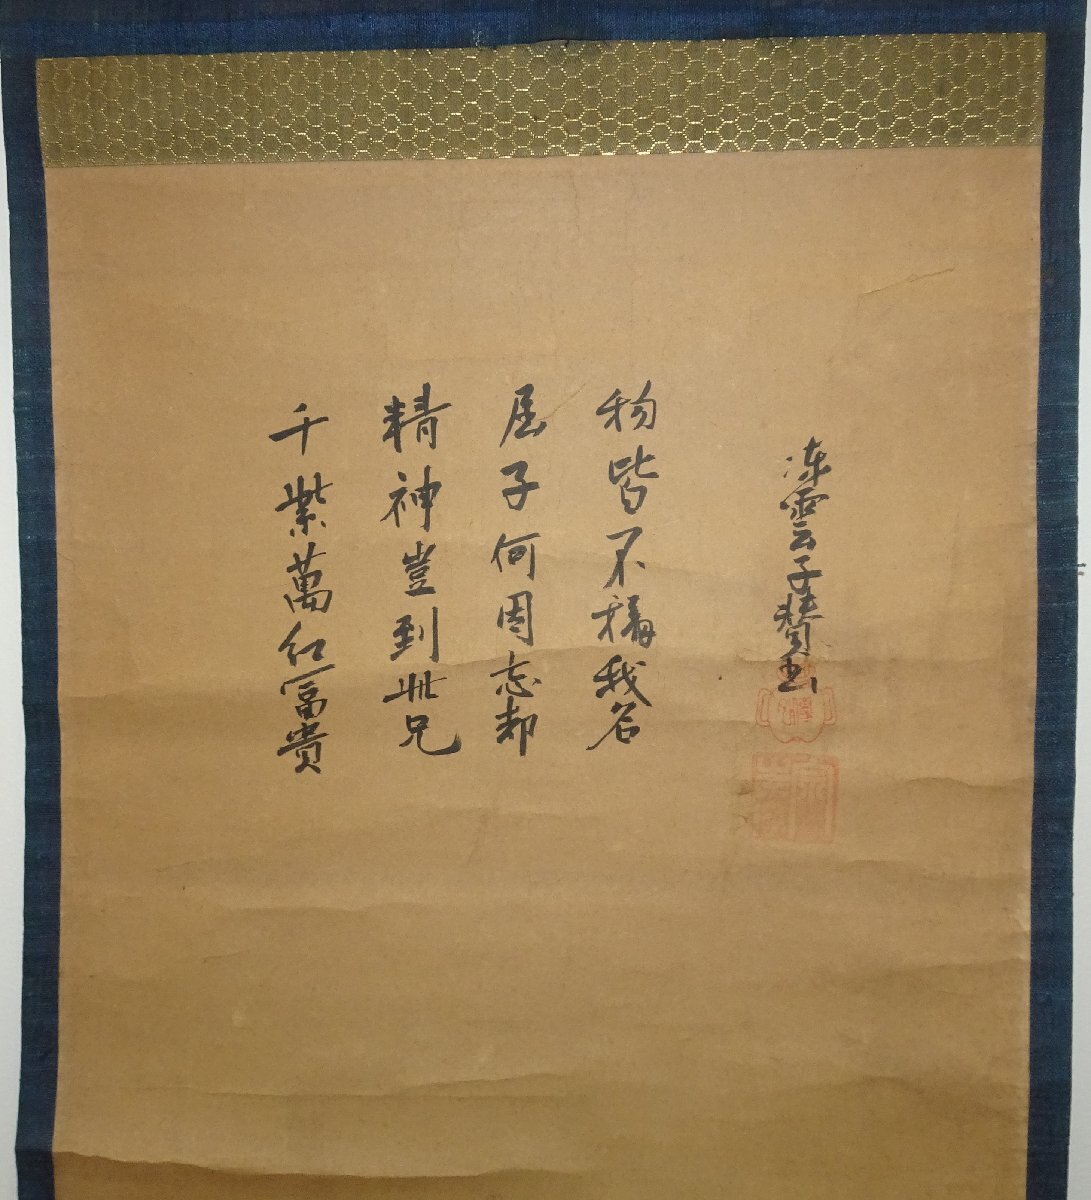 千紫萬紅冨貴
精神豈到此兄
屈子何因忘却
物皆不稱我名
凍雲子賛